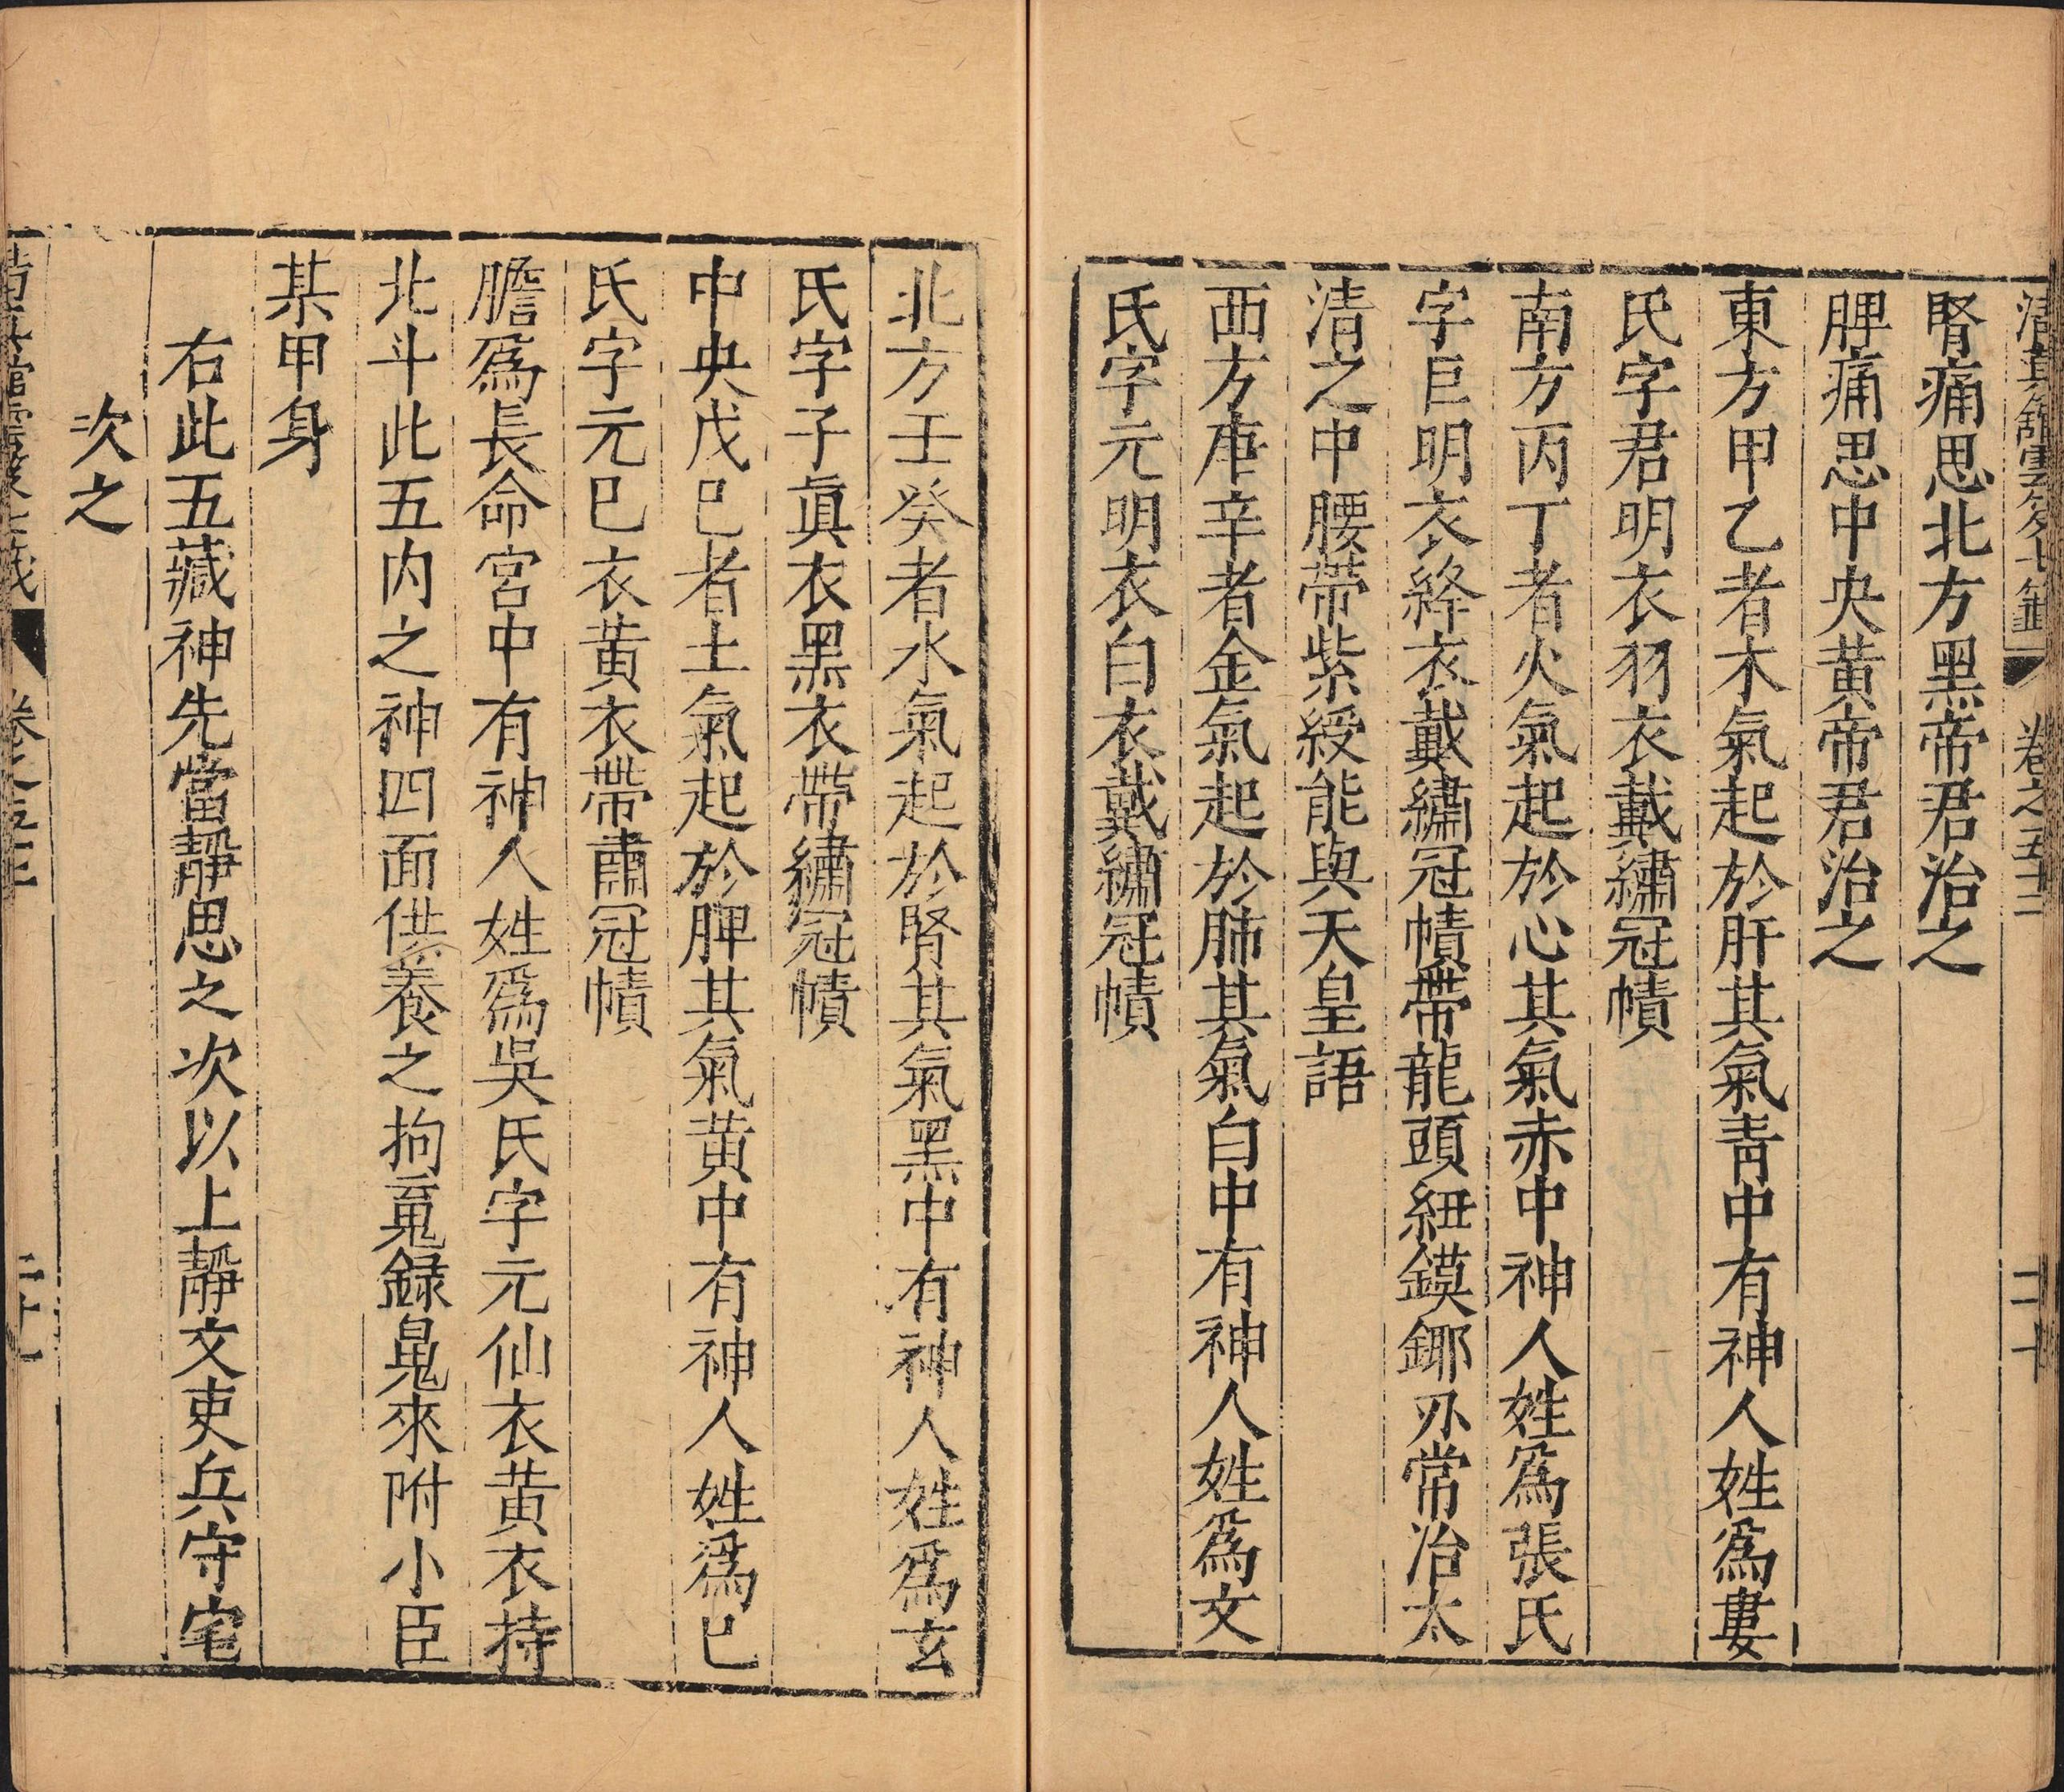 腎痛思北方黑帝君治之
脾痛思中央黃帝君治之
東方甲乙者木氣起於肝其氣靑中有神人姓爲婁
氏字君明衣羽衣戴繡冠幘
南方丙丁者火氣起於心其氣赤中神人姓爲張氏
字巨明衣絳衣戴繡冠幘帶龍頭紐鏌鎁刃常治太
清之中腰帶紫綬能與天皇語
西方庚辛者金氣起於肺其氣白中有神人姓爲文
氏字元明衣白衣戴繡冠幘
北方壬癸者水氣起於腎其氣黑中有神人姓爲玄
氏字子眞衣黑衣帶繡冠幘
中央戊巳者土氣起於脾其氣黄中有神人姓爲巳
氏字元巳衣黄衣帶肅冠幘
膽爲長命宮中有神人姓爲吳氏字元仙衣黄衣持
北斗此五內之神四面供養之拘䰟録鬽來附小臣
某甲身
右此五藏神先當靜思之次以上靜文吏兵守宅
次之